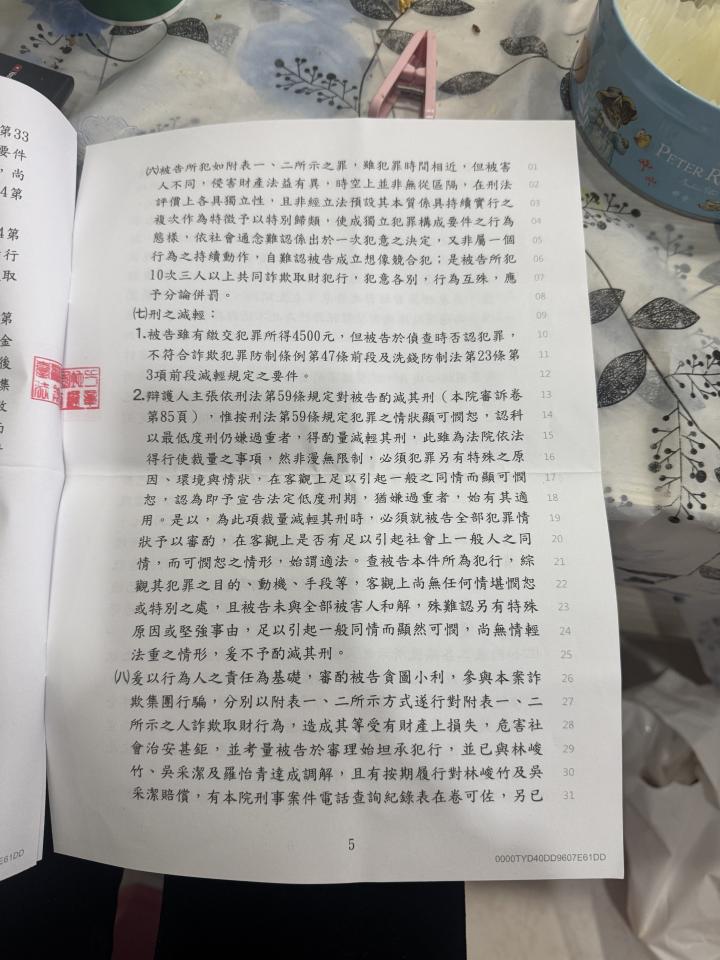 第33
要件
，尚
4第
4第
行
取
第
金
後
集
(六)被告所犯如附表一、二所示之罪，雖犯罪時間相近，但被害 01
人不同，侵害財產法益有異，時空上並非無從區隔，在刑法 02
評價上各具獨立性，且非經立法預設其本質係具持續實行之 03
複次作為特徵予以特別歸類，使成獨立犯罪構成要件之行為 04
態樣，依社會通念難認係出於一次犯意之決定，又非屬一個 05
行為之持續動作，自難認被告成立想像競合犯；是被告所犯 06
10次三人以上共同詐欺取財犯行，犯意各別，行為互殊，應 07
予分論併罰。 08
(七)刑之減輕： 09
1.被告雖有繳交犯罪所得4500元，但被告於偵查時否認犯罪， 10
不符合詐欺犯罪防制條例第47條前段及洗錢防制法第23條第 11
3項前段減輕規定之要件。 12
2.辯護人主張依刑法第59條規定對被告酌減其刑（本院審訴卷 13
第85頁），惟按刑法第59條規定犯罪之情狀顯可憫恕，認科 14
以最低度刑仍嫌過重者，得酌量減輕其刑，此雖為法院依法 15
得行使裁量之事項，然非漫無限制，必須犯罪另有特殊之原 16
因、環境與情狀，在客觀上足以引起一般之同情而顯可憫 17
恕，認為即予宣告法定低度刑期，猶嫌過重者，始有其適 18
用。是以，為此項裁量減輕其刑時，必須就被告全部犯罪情 19
狀予以審酌，在客觀上是否有足以引起社會上一般人之同 20
情，而可憫恕之情形，始謂適法。查被告本件所為犯行，綜 21
觀其犯罪之目的、動機、手段等，客觀上尚無任何情堪憫恕 22
或特別之處，且被告未與全部被害人和解，殊難認另有特殊 23
原因或堅強事由，足以引起一般同情而顯然可憫，尚無情輕 24
法重之情形，爰不予酌減其刑。 25
(八)爰以行為人之責任為基礎，審酌被告貪圖小利，參與本案詐 26
欺集團行騙，分別以附表一、二所示方式遂行對附表一、二 27
所示之人詐欺取財行為，造成其等受有財產上損失，危害社 28
會治安甚鉅，並考量被告於審理始坦承犯行，並已與林峻 29
竹、吳采潔及羅怡青達成調解，且有按期履行對林峻竹及吳 30
采潔賠償，有本院刑事案件電話查詢紀錄表在卷可佐，另已 31
5
0000TYD40DD9607E61DD
E61DD
PETER R